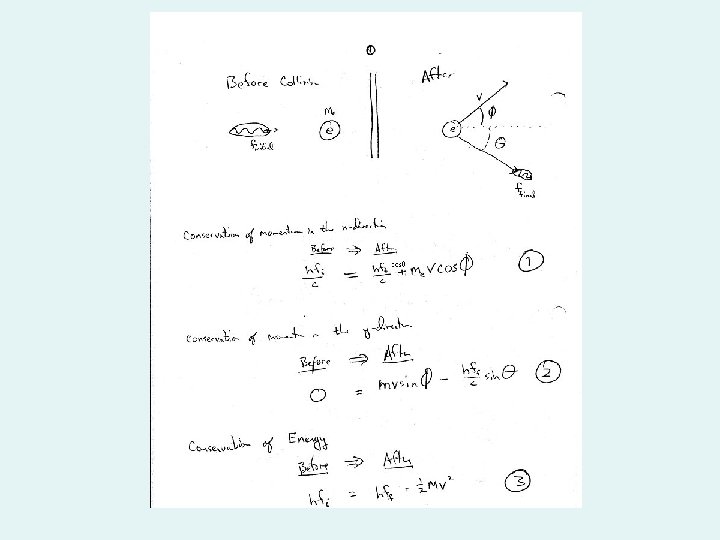 ①
Before Collision
After
Mₑ
e
f initial
v
ϕ
e
θ
f final
Conservation of momentum in the x-direction
Before ⇒ After
hfᵢ/c = hf_f/c cosθ + mₑ v cos ϕ ①
Conservation of moment in the y-direction
Before ⇒ After
0 = mv sin ϕ − hf_f/c sin θ ②
Conservation of Energy
Before ⇒ After
hfᵢ = hf_f - ½Mv² ③